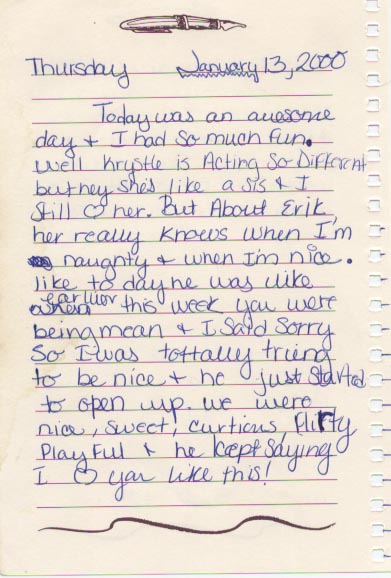 Thursday January 13, 2000
Today was an auesome
day + I had so much fun.
Well Krystle is Acting So Different
but hey she's like a sis + I
Still ♡ her. But About Erik,
her really knows when I'm
naughty + when Im nice.
like to day he was like
earlier this week you were
being mean + I Said Sorry
So I was tottally tring
to be nice + he just started
to open up. we were
nice, sweet, curtious, flirty
Playful + he kept saying
I ♡ you like this!